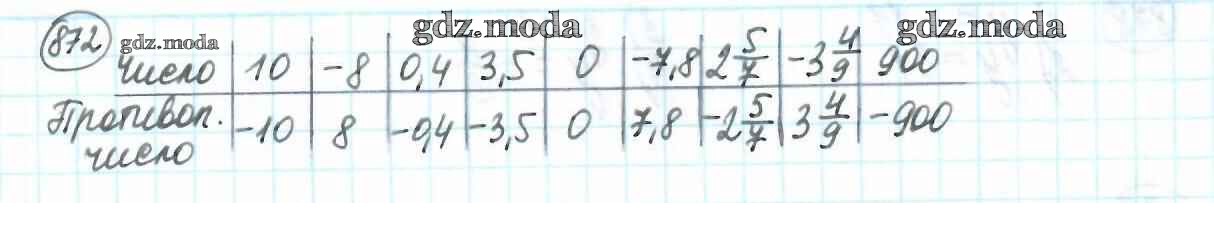 gdz.moda gdz.moda
872 gdz.moda
Число | 10 | -8 | 0,4 | 3,5 | 0 | -7,8 | 2 5/7 | -3 4/9 | 900
Противоп. число | -10 | 8 | -0,4 | -3,5 | 0 | 7,8 | -2 5/7 | 3 4/9 | -900